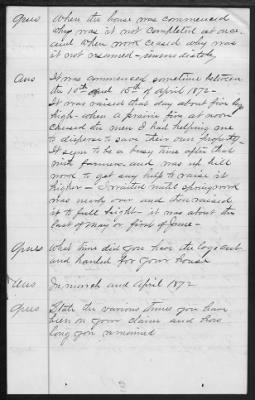 Ques When the house was commenced
why was it not completed at once
and when work ceased why was
it not resumed - immediately
Ans It was commenced sometime between
the 10th and 15th of April 1872 -
It was raised that day about five logs
high - when a prairie fire at noon
caused the men I had helping me
to disperse to save their own property -
It seems to be a busy time after that
with farmers and was up hill
work to get any help to raise it
higher - I waited until spring work
was nearly over and then raised
it to full hight - it was about the
last of May or first of June -
Ques What time did you have the logs cut
and hauled for your house
Ans In March and April 1872
Ques State the various times you have
been on your claim and how
long you remained